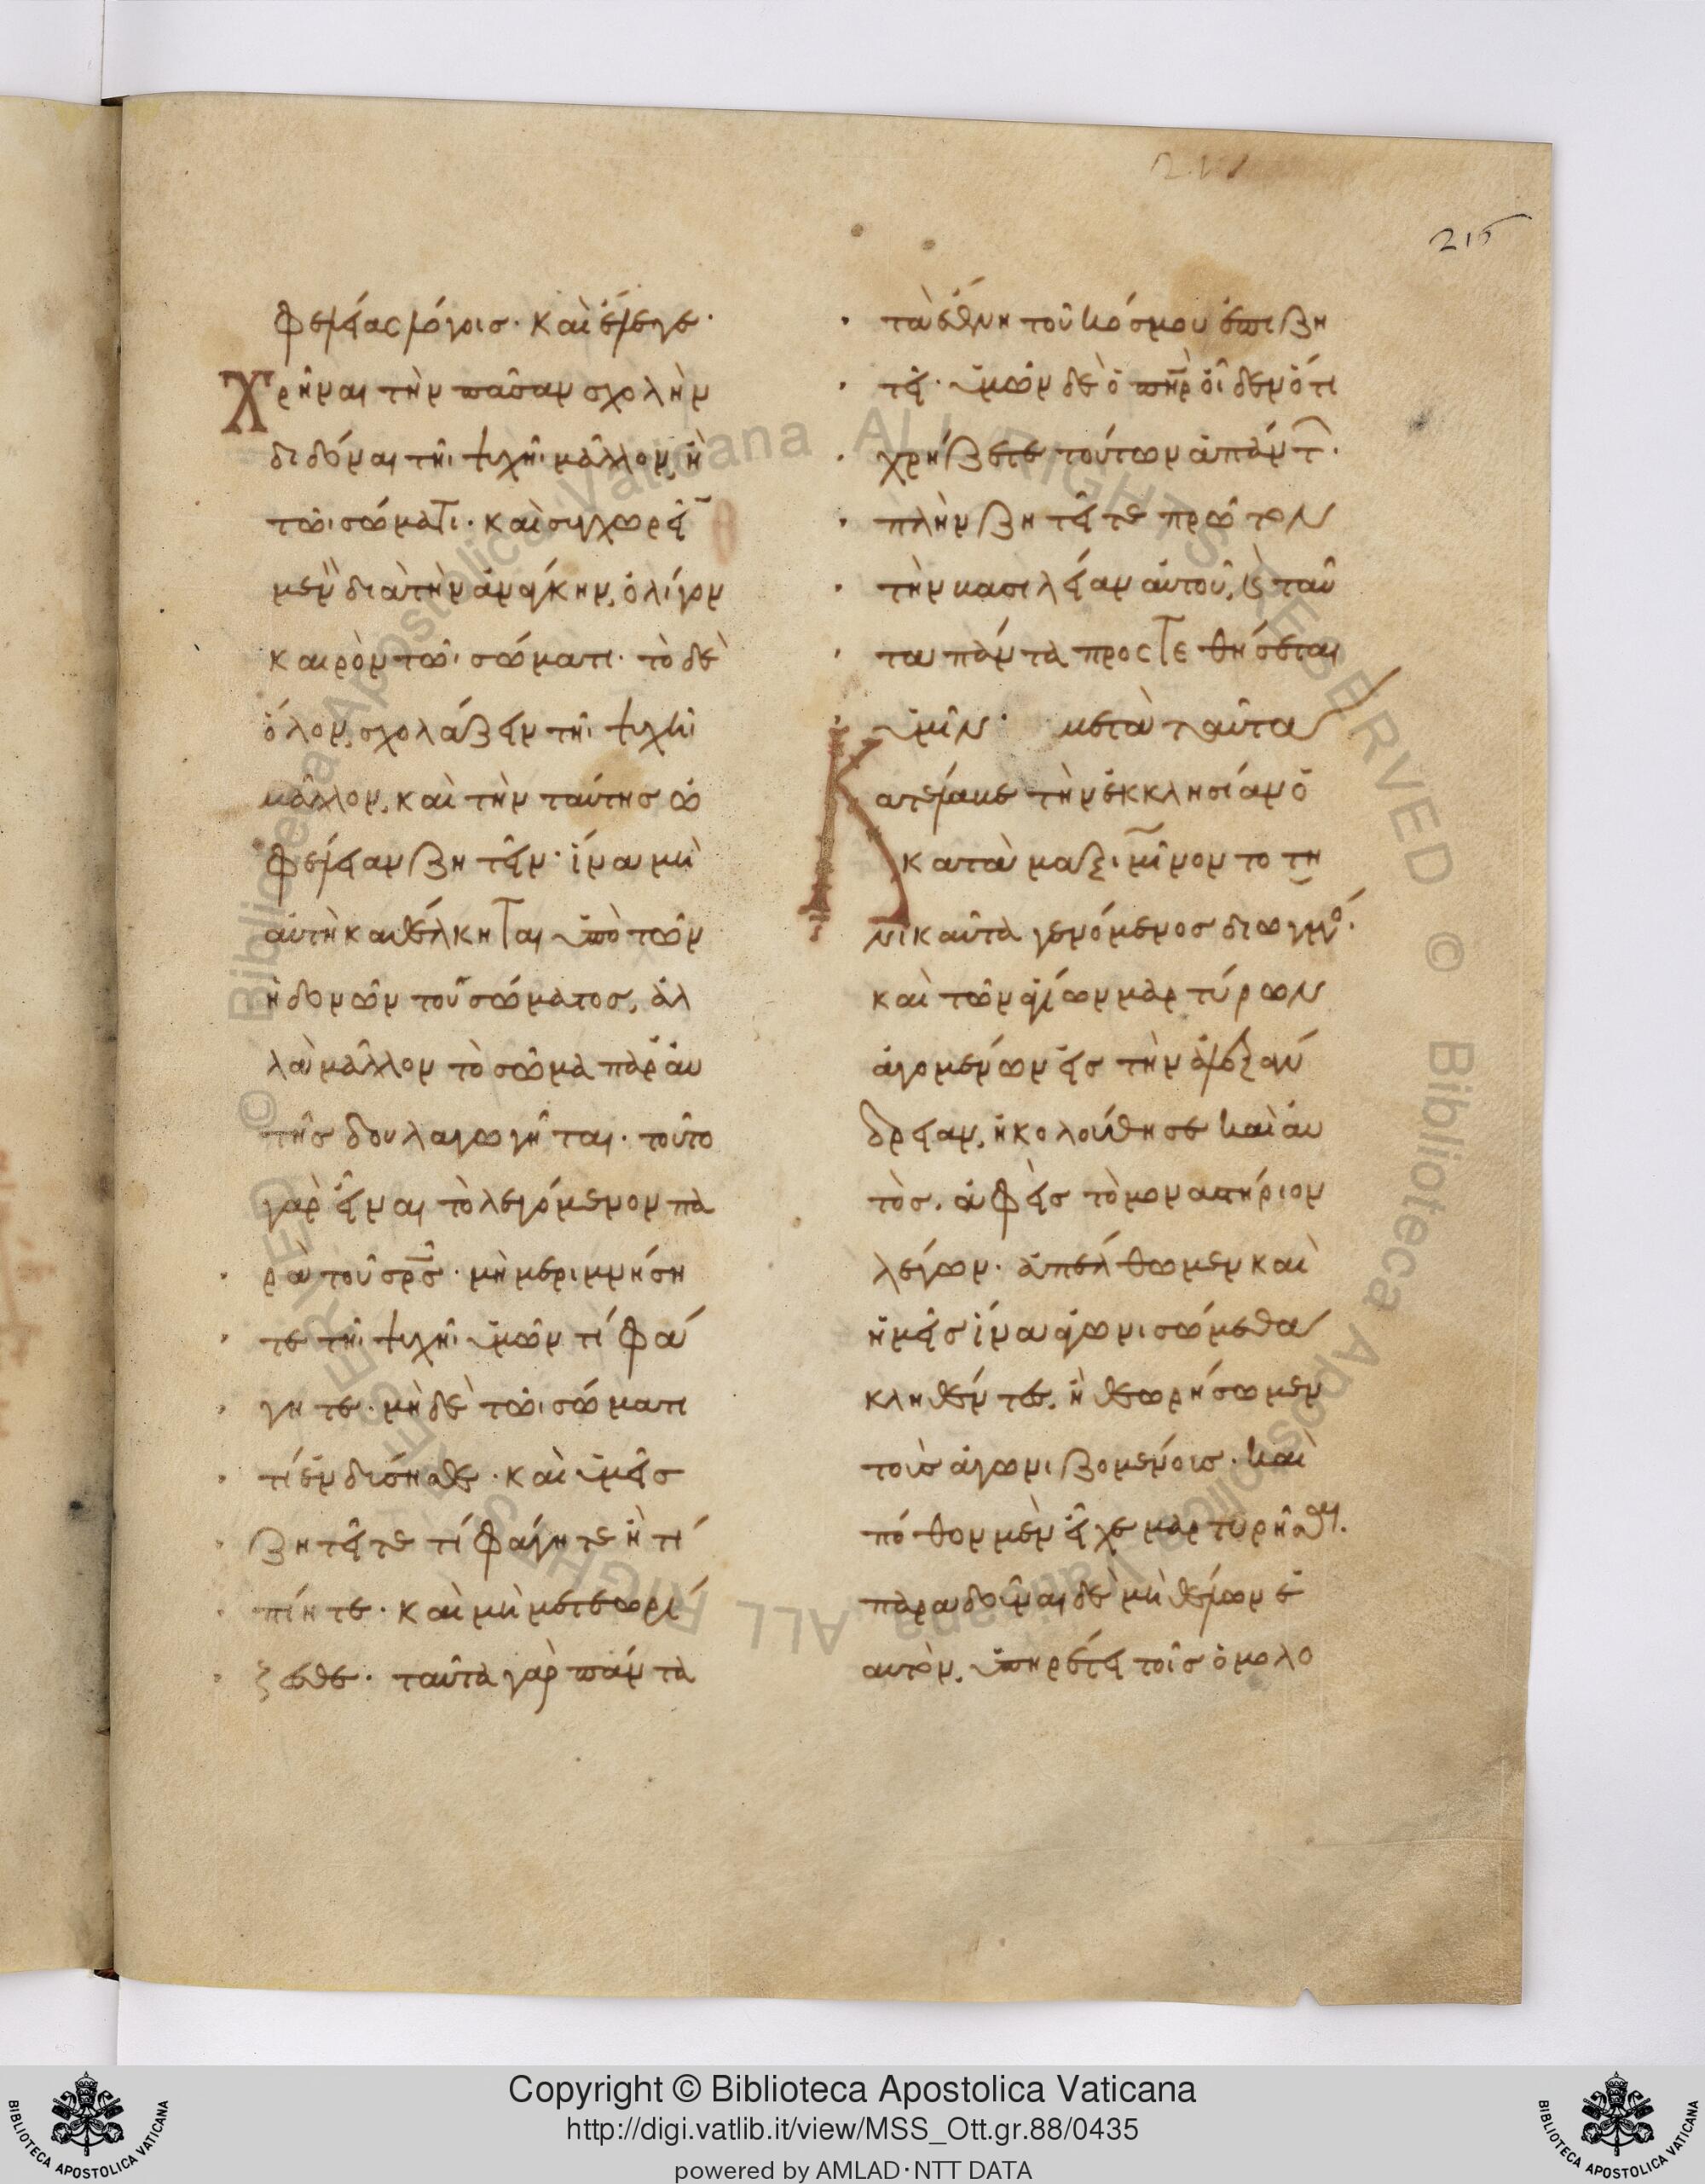 215
φελείας λόγοις· καὶ ἔλεγε·
Χρῆναι τὴν πᾶσαν σχολὴν
διδόναι τῆι ψυχῆι μᾶλλον, ἢ
τῶι σώματι· καὶ συγχωρεῖ
μὲν διὰ τὴν ἀνάγκην, ὀλίγον
καιρὸν τῶι σώματι· τὸ δὲ
ὅλον, σχολάζειν τῆι ψυχῆι
μᾶλλον, καὶ τὴν ταύτης ὠ
φέλειαν ζητεῖν· ἵνα μὴ
αὐτὴ καθέλκηται ὑπὸ τῶν
ἡδονῶν τοῦ σώματος, ἀλ
λὰ μᾶλλον τὸ σῶμα παρ' αὐ
τῆς δουλαγωγῆται· τοῦτο
γὰρ εἶναι τὸ λεγόμενον πα
ρὰ τοῦ σρς· μὴ μεριμνήση
τε τῆι ψυχῆι ὑμῶν τί φά
γητε· μὴ δὲ τῶι σώματι
τί ἐνδύσησθε· καὶ ὑμεῖς
ζητεῖτε τί φάγητε ἢ τί
πίητε· καὶ μὴ μετεωρί
ζεσθε· ταῦτα γὰρ πάντα
τὰ ἔθνη τοῦ κόσμου ἐπιζη
τεῖ· ὑμῶν δὲ ὁ πηρ οἶδεν ὅτι
χρήζετε τούτων ἁπάντ·
πλὴν ζητεῖτε πρῶτον
τὴν βασιλείαν αὐτοῦ, καὶ ταῦ
τα πάντα προστεθήσεται
ὑμῖν· μετὰ ταῦτα
Κατέλαβε τὴν ἐκκλησίαν ὁ
κατὰ μαξιμῖνον το τη
νικαῦτα γενόμενος διωγμο·
καὶ τῶν ἁγίων μαρτύρων
ἀγομένων εἰς τὴν ἀλεξάν
δρειαν, ἠκολούθησε καὶ αὐ
τὸς, ἀφεὶς τὸ μοναστήριον
λέγων· ἀπέλθωμεν καὶ
ἡμεῖς ἵνα ἀγωνισώμεθα
κληθέντες, ἢ θεωρήσωμεν
τοὺς ἀγωνιζομένους· καὶ
πόθον μὲν εἶχε μαρτυρῆσαι·
παραδοῦναι δὲ μὴ θέλων ἑ
αυτὸν, ὑπηρέτει τοῖς ὁμολο
Copyright © Biblioteca Apostolica Vaticana
http://digi.vatlib.it/view/MSS_Ott.gr.88/0435
powered by AMLAD·NTT DATA
BIBLIOTECA APOSTOLICA VATICANA
BIBLIOTECA APOSTOLICA VATICANA
© Biblioteca Apostolica Vaticana ALL RIGHTS RESERVED © Biblioteca Apostolica Vaticana ALL RIGHTS RESERVED